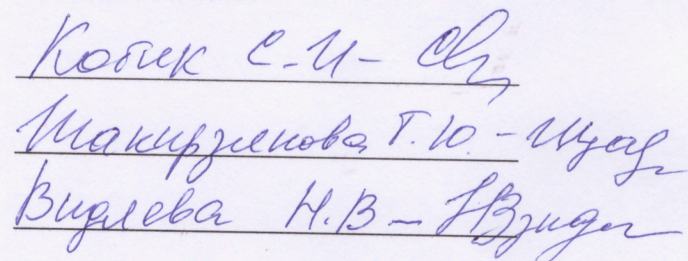 Котик С-И-
Шакирзянова Т.Ю. -
Видяева Н.В -